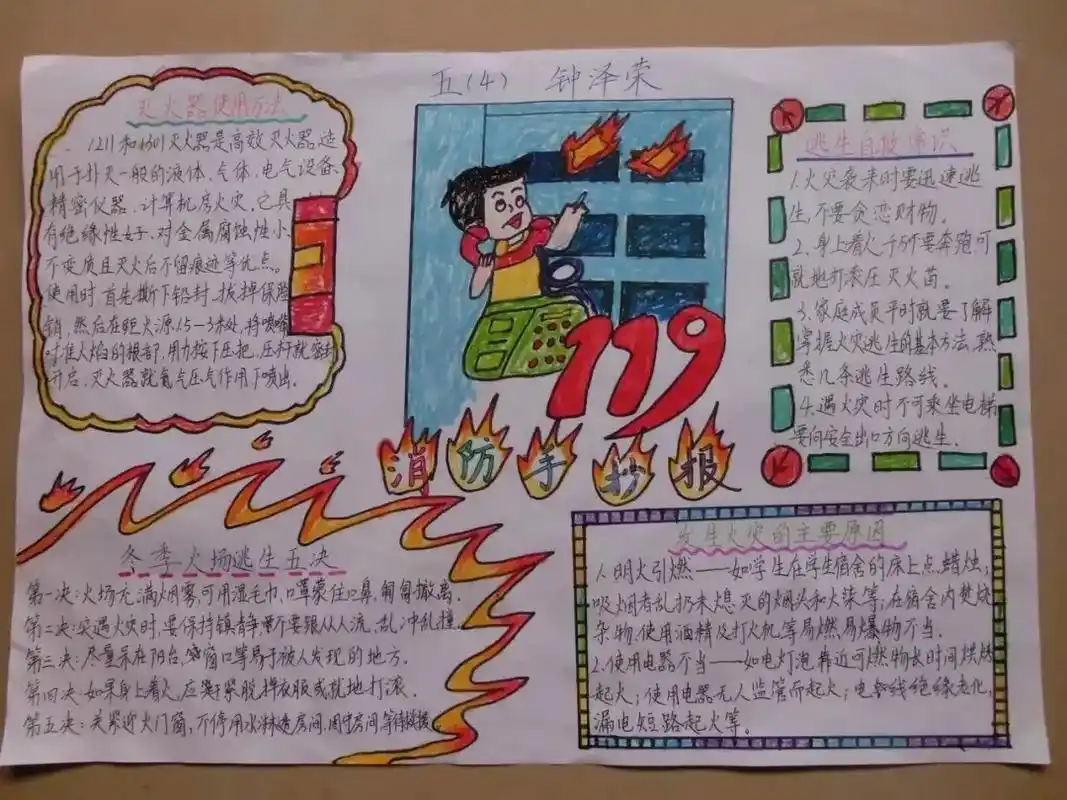 五(4) 钟泽荣
灭火器使用方法
1211和1301灭火器是高效灭火器,适
用于扑灭一般的液体、气体、电气设备、
精密仪器、计算机房火灾,它具
有绝缘性好、对金属腐蚀性小、
不变质且灭火后不留痕迹等优点。
使用时,首先撕下铅封,拔掉保险
销,然后在距火源1.5-3米处,将喷嘴
对准火焰的根部,用力按下压把,压杆就密封
开启,灭火器就氮气压气作用下喷出。
119
消防手抄报
逃生自救常识
1.火灾袭来时要迅速逃
生,不要贪恋财物。
2.身上着火千万不要奔跑可
就地打滚压灭火苗。
3.家庭成员平时就要了解
掌握火灾逃生的基本方法,熟
悉几条逃生路线。
4.遇火灾时不可乘坐电梯
要向安全出口方向逃生。
冬季火场逃生五决
第一决:火场充满烟雾,可用湿毛巾,口罩蒙住口鼻,匍匐撤离。
第二决:突遇火灾时,要保持镇静,不要跟从人流、乱冲乱撞。
第三决:尽量呆在阳台、窗口等易于被人发现的地方。
第四决:如果身上着火,应赶紧脱掉衣服或就地打滚。
第五决:关紧近火门窗,不停用水淋透房间,固守房间等待救援。
发生火灾的主要原因
1.明火引燃——如学生在学生宿舍的床上点蜡烛;
吸烟者乱扔未熄灭的烟头和火柴等,在宿舍内焚烧
杂物,使用酒精及打火机等易燃易爆物不当。
2.使用电器不当——如电灯泡靠近可燃物长时间烘烤
起火;使用电器无人监管而起火;电线绝缘老化,
漏电短路起火等。